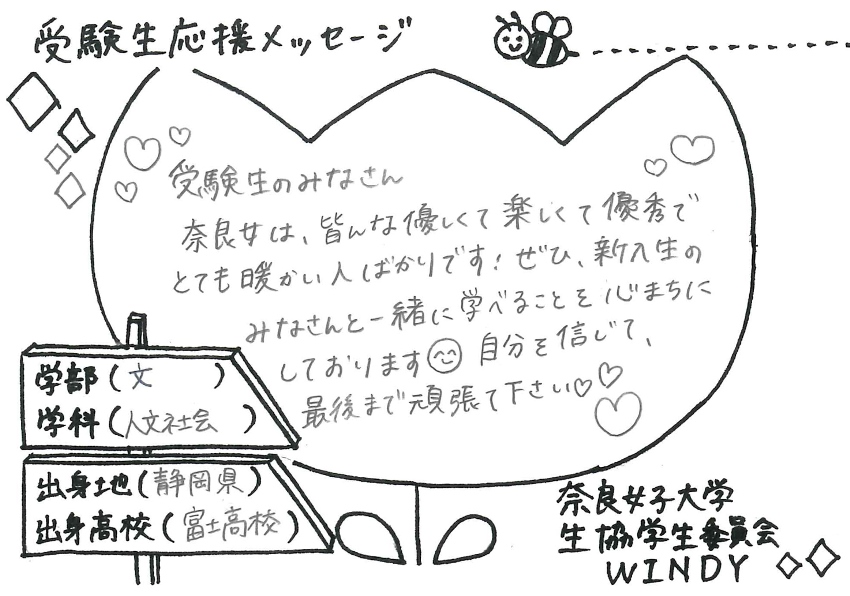 受験生応援メッセージ
受験生のみなさん
奈良女は、皆んな優しくて楽しくて優秀で
とても暖かい人ばかりです！ぜひ、新入生の
みなさんと一緒に学べることを心まちに
しております 自分を信じて、
最後まで頑張て下さい♡
学部(文)
学科(人文社会)
出身地(静岡県)
出身高校(富士高校)
奈良女子大学
生協学生委員会
WINDY